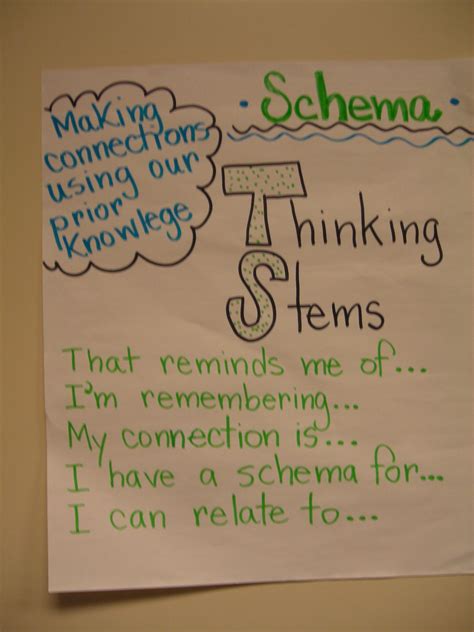 Making
connections
using our
prior
Knowlege
· Schema ·
Thinking
Stems
That reminds me of...
I'm remembering...
My connection is...
I have a schema for...
I can relate to...